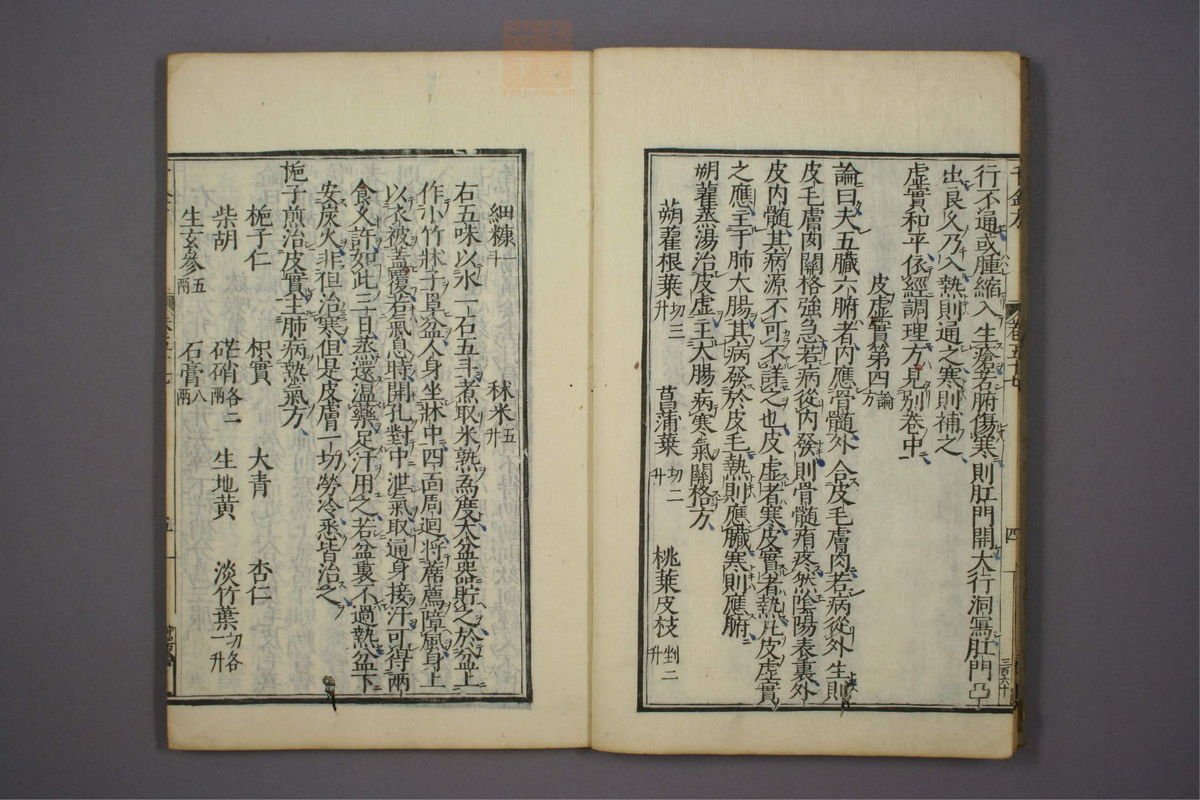 行不通或腫縮入生瘡若腑傷寒則肛門開大行洞寫肛門凸
出良久乃入熱則通之寒則補之
虛實和平依經調理方見別卷中
皮虛實第四論方
論曰夫五臟六腑者內應骨髓外合皮毛膚肉若病從外生則
皮毛膚肉關格強急若病從內發則骨髓痟疼然陰陽表裏外
皮內髓其病源不可不詳之也皮虛者寒皮實者熱凡皮虛實
之應主于肺大腸其病發於皮毛熱則應臟寒則應腑
蒴藋蒸湯治皮虛主大腸病寒氣關格方
蒴藋根葉切三升 菖蒲葉切二升 桃葉皮枝剉二升
細糠一斗 秫米五升
右五味以水一石五斗煮取米熟為度大盆器貯之於盆上
作小竹牀子罥盆人身坐牀中四面周迴將蓆薦障風身上
以衣被蓋覆若氣息時開孔對中泄氣取通身接汗可得兩
食久許如此三日蒸還温藥足汗用之若盆裏不過熱盆下
安炭火非但治寒但是皮膚一切勞冷悉皆治之
梔子煎治皮實主肺病熱氣方
梔子仁 枳實 大青 杏仁
柴胡 芒硝各二兩 生地黃 淡竹葉切各一升
生玄參五兩 石膏八兩